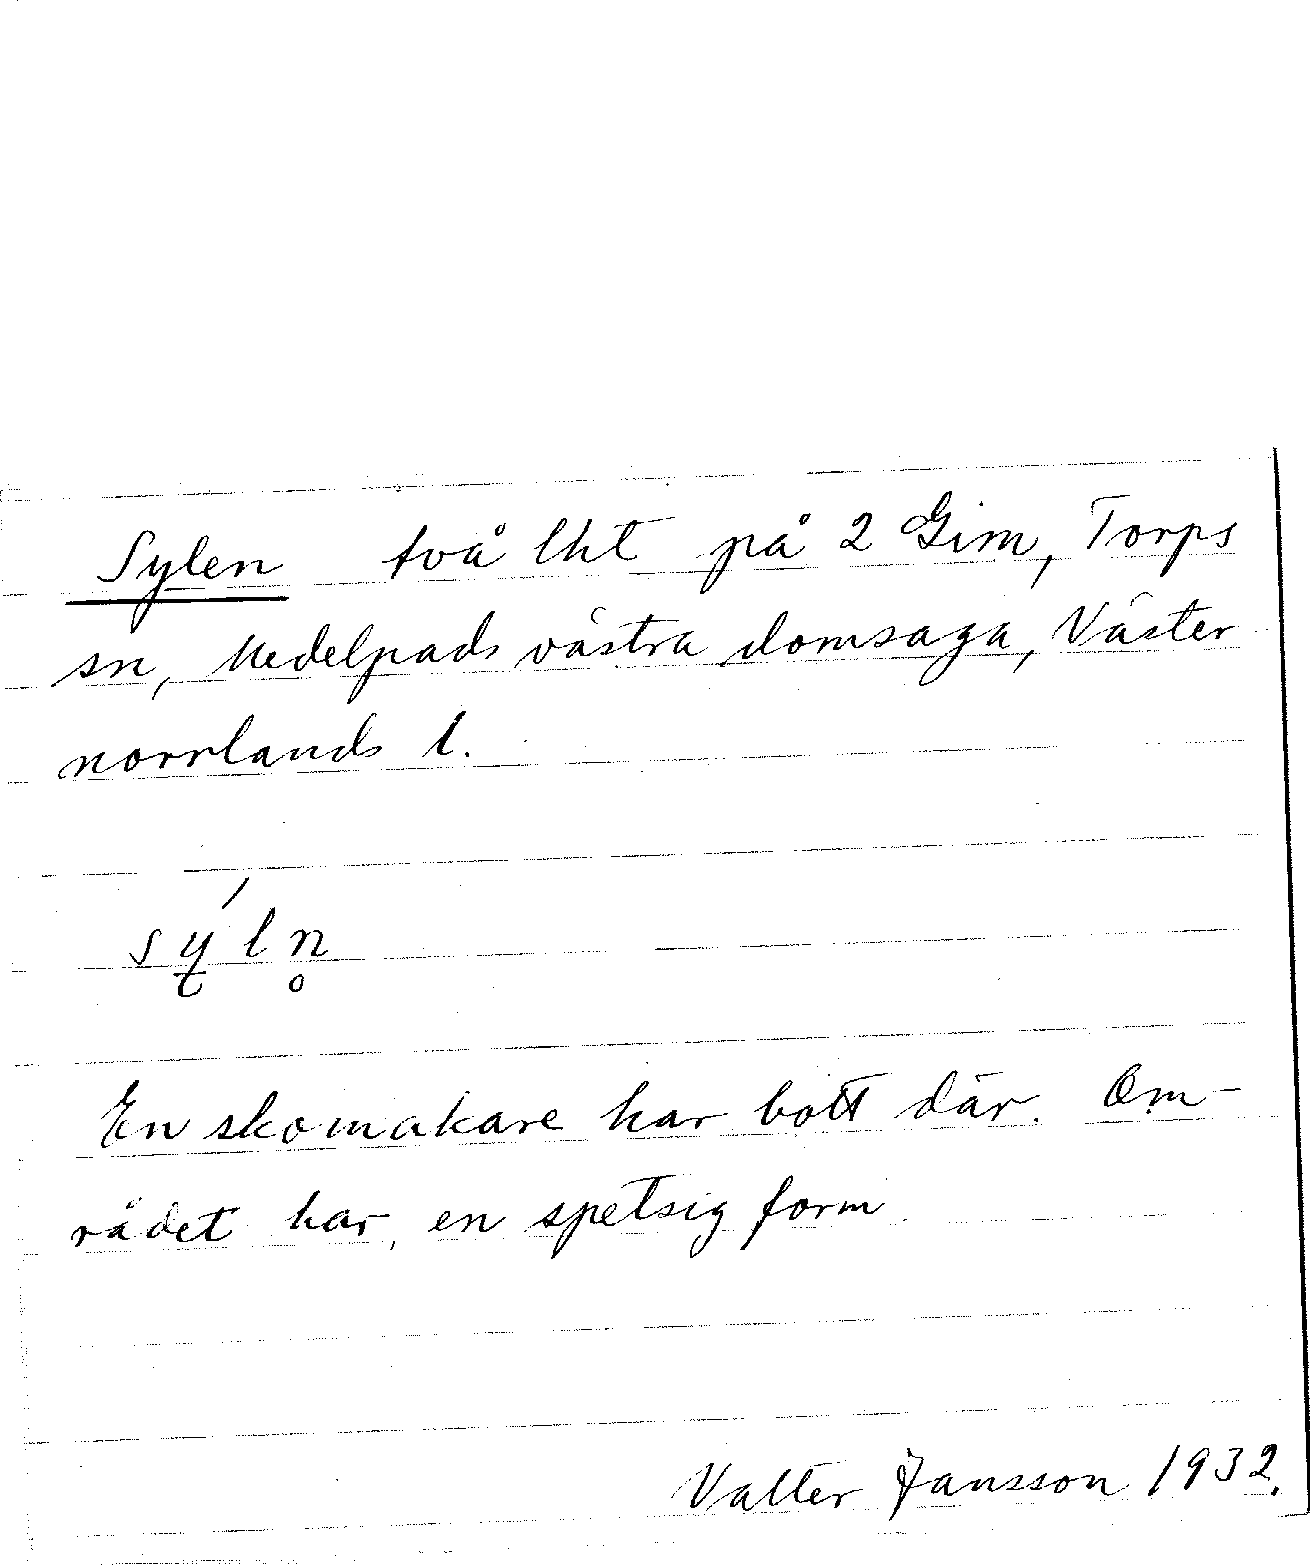 Sylen två lht på 2 Gim, Torps
sn, Medelpads västra domsaga, Väster
norrlands l.
sý̱ln̥
En skomakare har bott där. Om-
rådet har en spetsig form
Valter Jansson 1932.